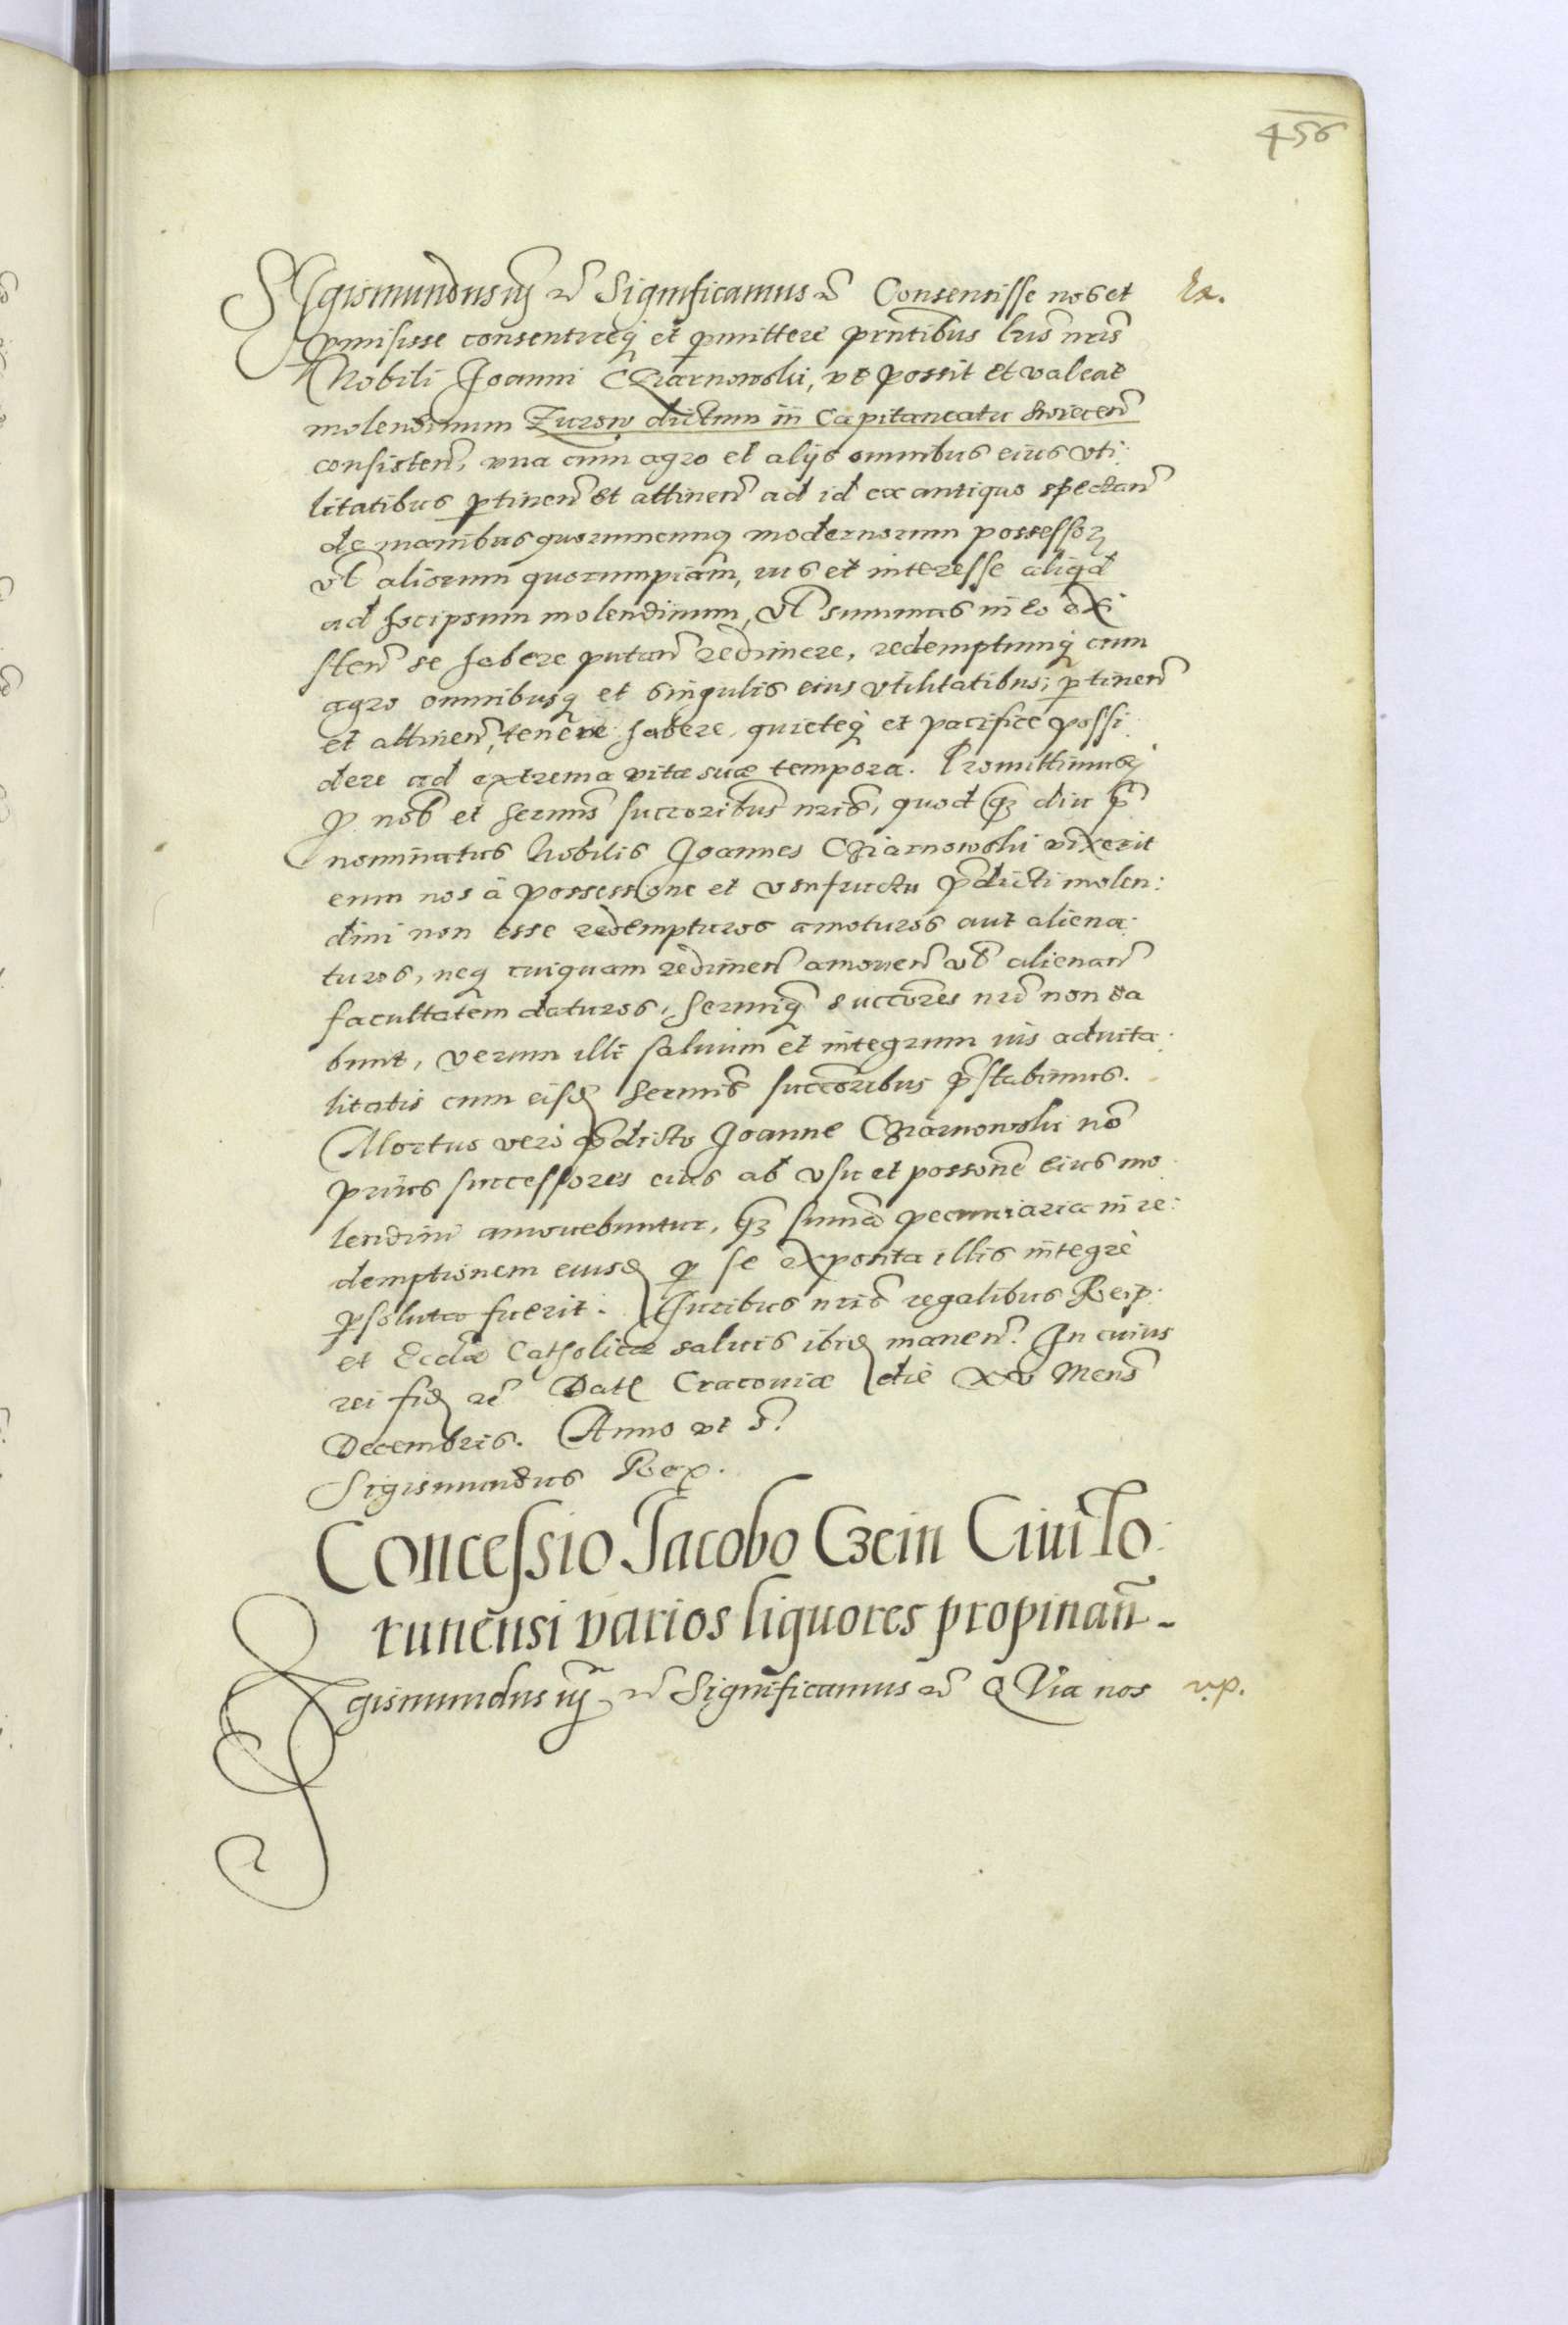 456
Sigismundus iij etc Significamus etc Consensisse nos et Ex.
pmisisse consentireq et pmittere pñtibus lris nris
Nobili Joanni Cziarnowski, vt possit et valeat
molendinum Zurow dictum in Capitaneatu Swiecen
consisten, vna cum agro et alijs omnibus eius vti:
litatibus ptinen et attinen ad id ex antiquo spectan
de manibus quorumcunq modernorum possessor
vl aliorum quorumpiam, ius et interesse aliqd
ad hocipsum molendinum, vl summas in eo exi
sten se habere putan redimere, redemptumq cum
agro omnibusq et singulis eius vtilitatibus, ptinen
et attinen, tenere habere, quieteq et pacifice possi:
dere ad extrema vitæ suæ tempora. Promittimusq
p nob et sermis succoribus nris, quod qz diu p
nominatus Nobilis Joannes Cziarnowski vixerit
eum nos à possessione et vsufructu pdicti molen:
dini non esse redempturos amoturos aut aliena:
turos, neq cuiquam redimen amouen vl alienan
facultatem daturos, sermiq succores nri non da
bunt, verum illi saluum et integrum ius aduita:
litatis cum eisd sermis succoribus pstabimus.
Mortuo vero pdicto Joanne Cziarnowski no
prius successores eius ab vsu et possone eius mo
lendini amouebuntur, qz summa pecuniaria in re:
demptionem eiusd p se exposita illis integrè
psoluta fuerit. Juribus nris regalibus Reip:
et Eccliæ Catholicæ saluis ibid manen. In cuius
rei fid etc Dat Cracouiæ die xv Mens
Decembris. Anno vt s.
Sigismundus Rex.
Concessio Jacobo Czein Ciui To:
runensi varios liquores propinan.
Sigismundus iij etc Significamus etc QVia nos v.p.